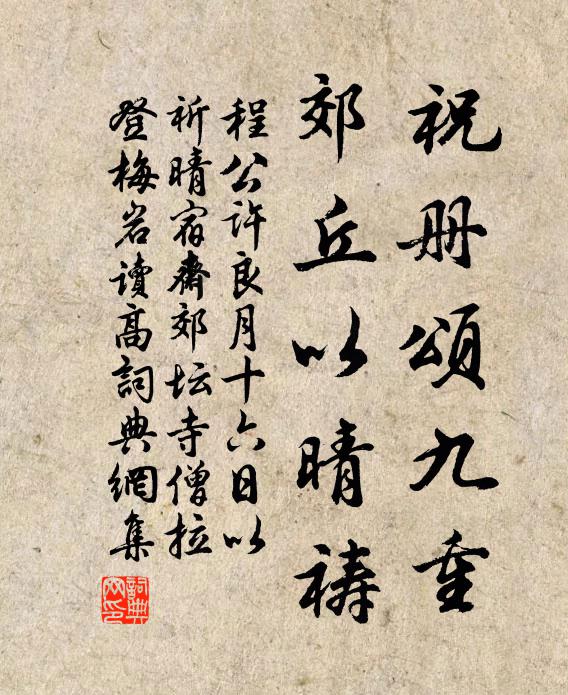 祝册頌九重
郊丘以晴禱
程公许良月十六日以
祈晴宿斋郊坛寺僧拉
登梅岩读高詞典網集
詞典
网印